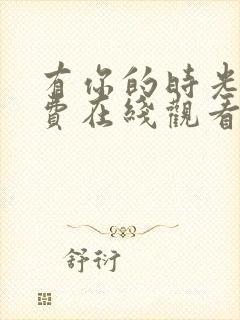 有你的時光
費在綫觀看
舒衍